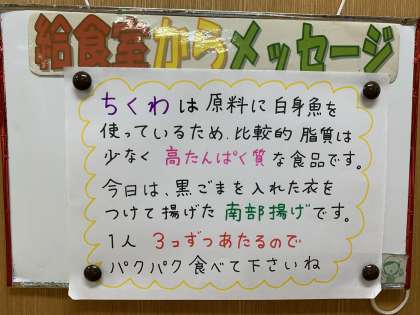 給食室からメッセージ
ちくわは原料に白身魚を
使っているため、比較的脂質は
少なく高たんぱく質な食品です。
今日は、黒ごまを入れた衣を
つけて揚げた南部揚げです。
1人 3コずつあたるので
パクパク食べて下さいね